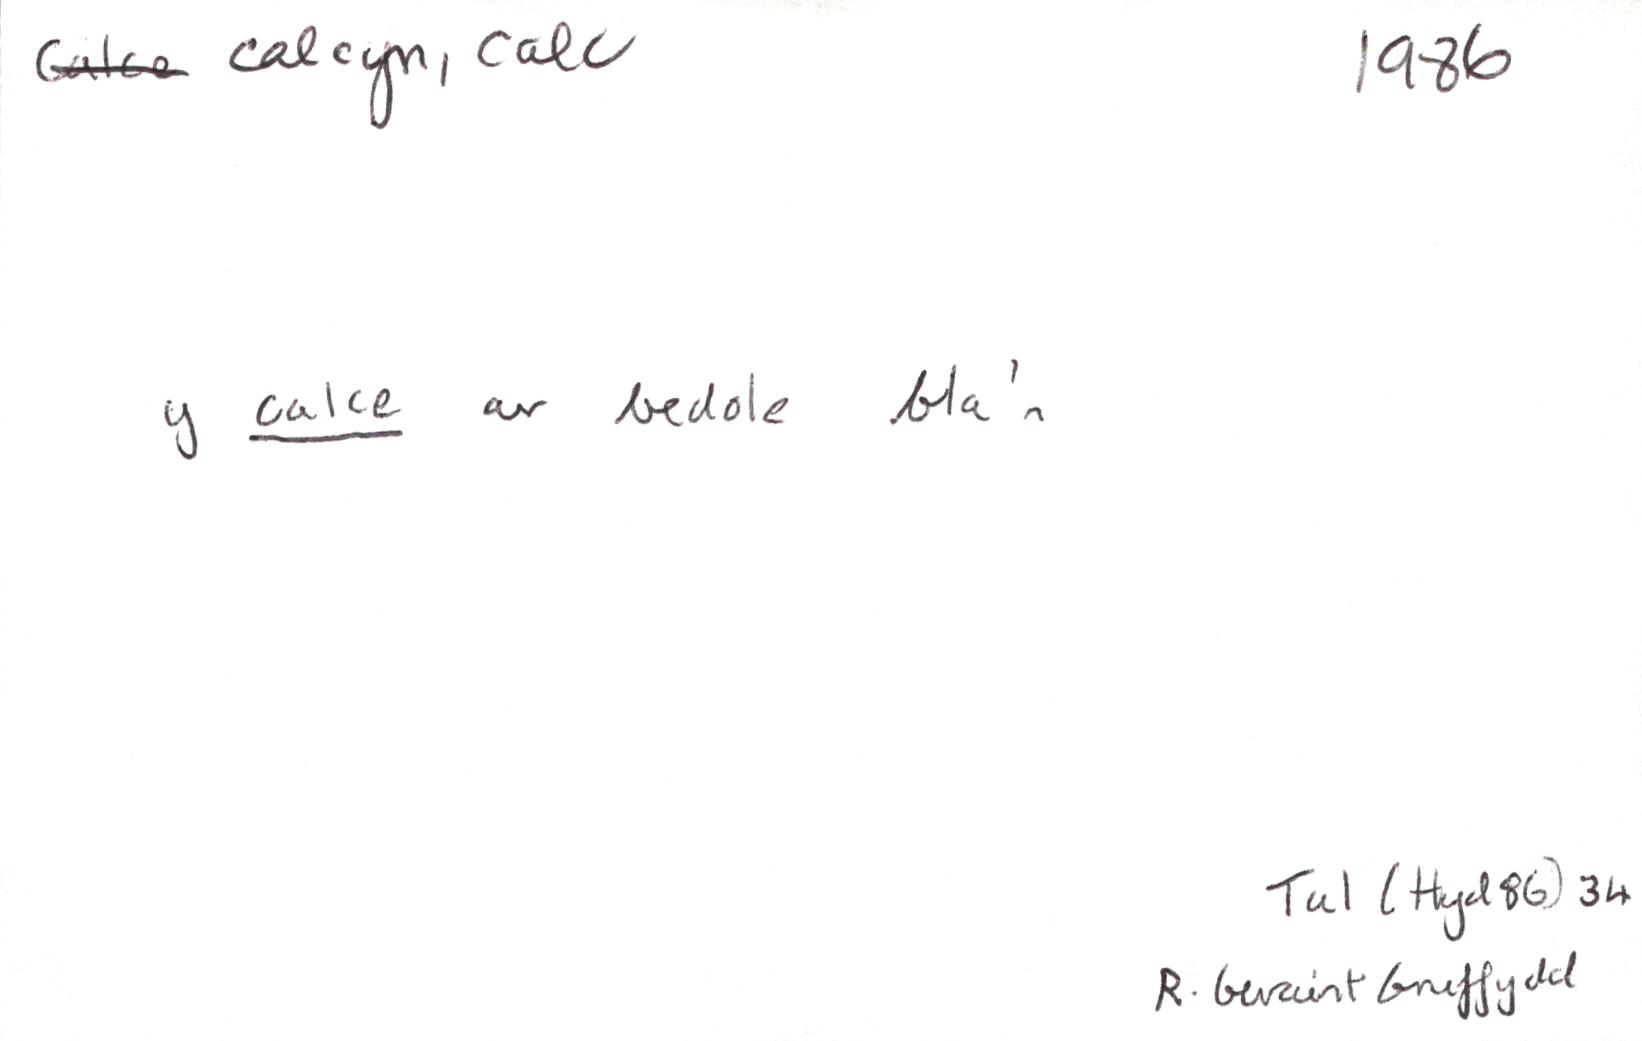 Calce calcyn, calc 1986
y calce ar bedole bla'n
Tal (Hyd 86) 34
R. Geraint Gruffydd